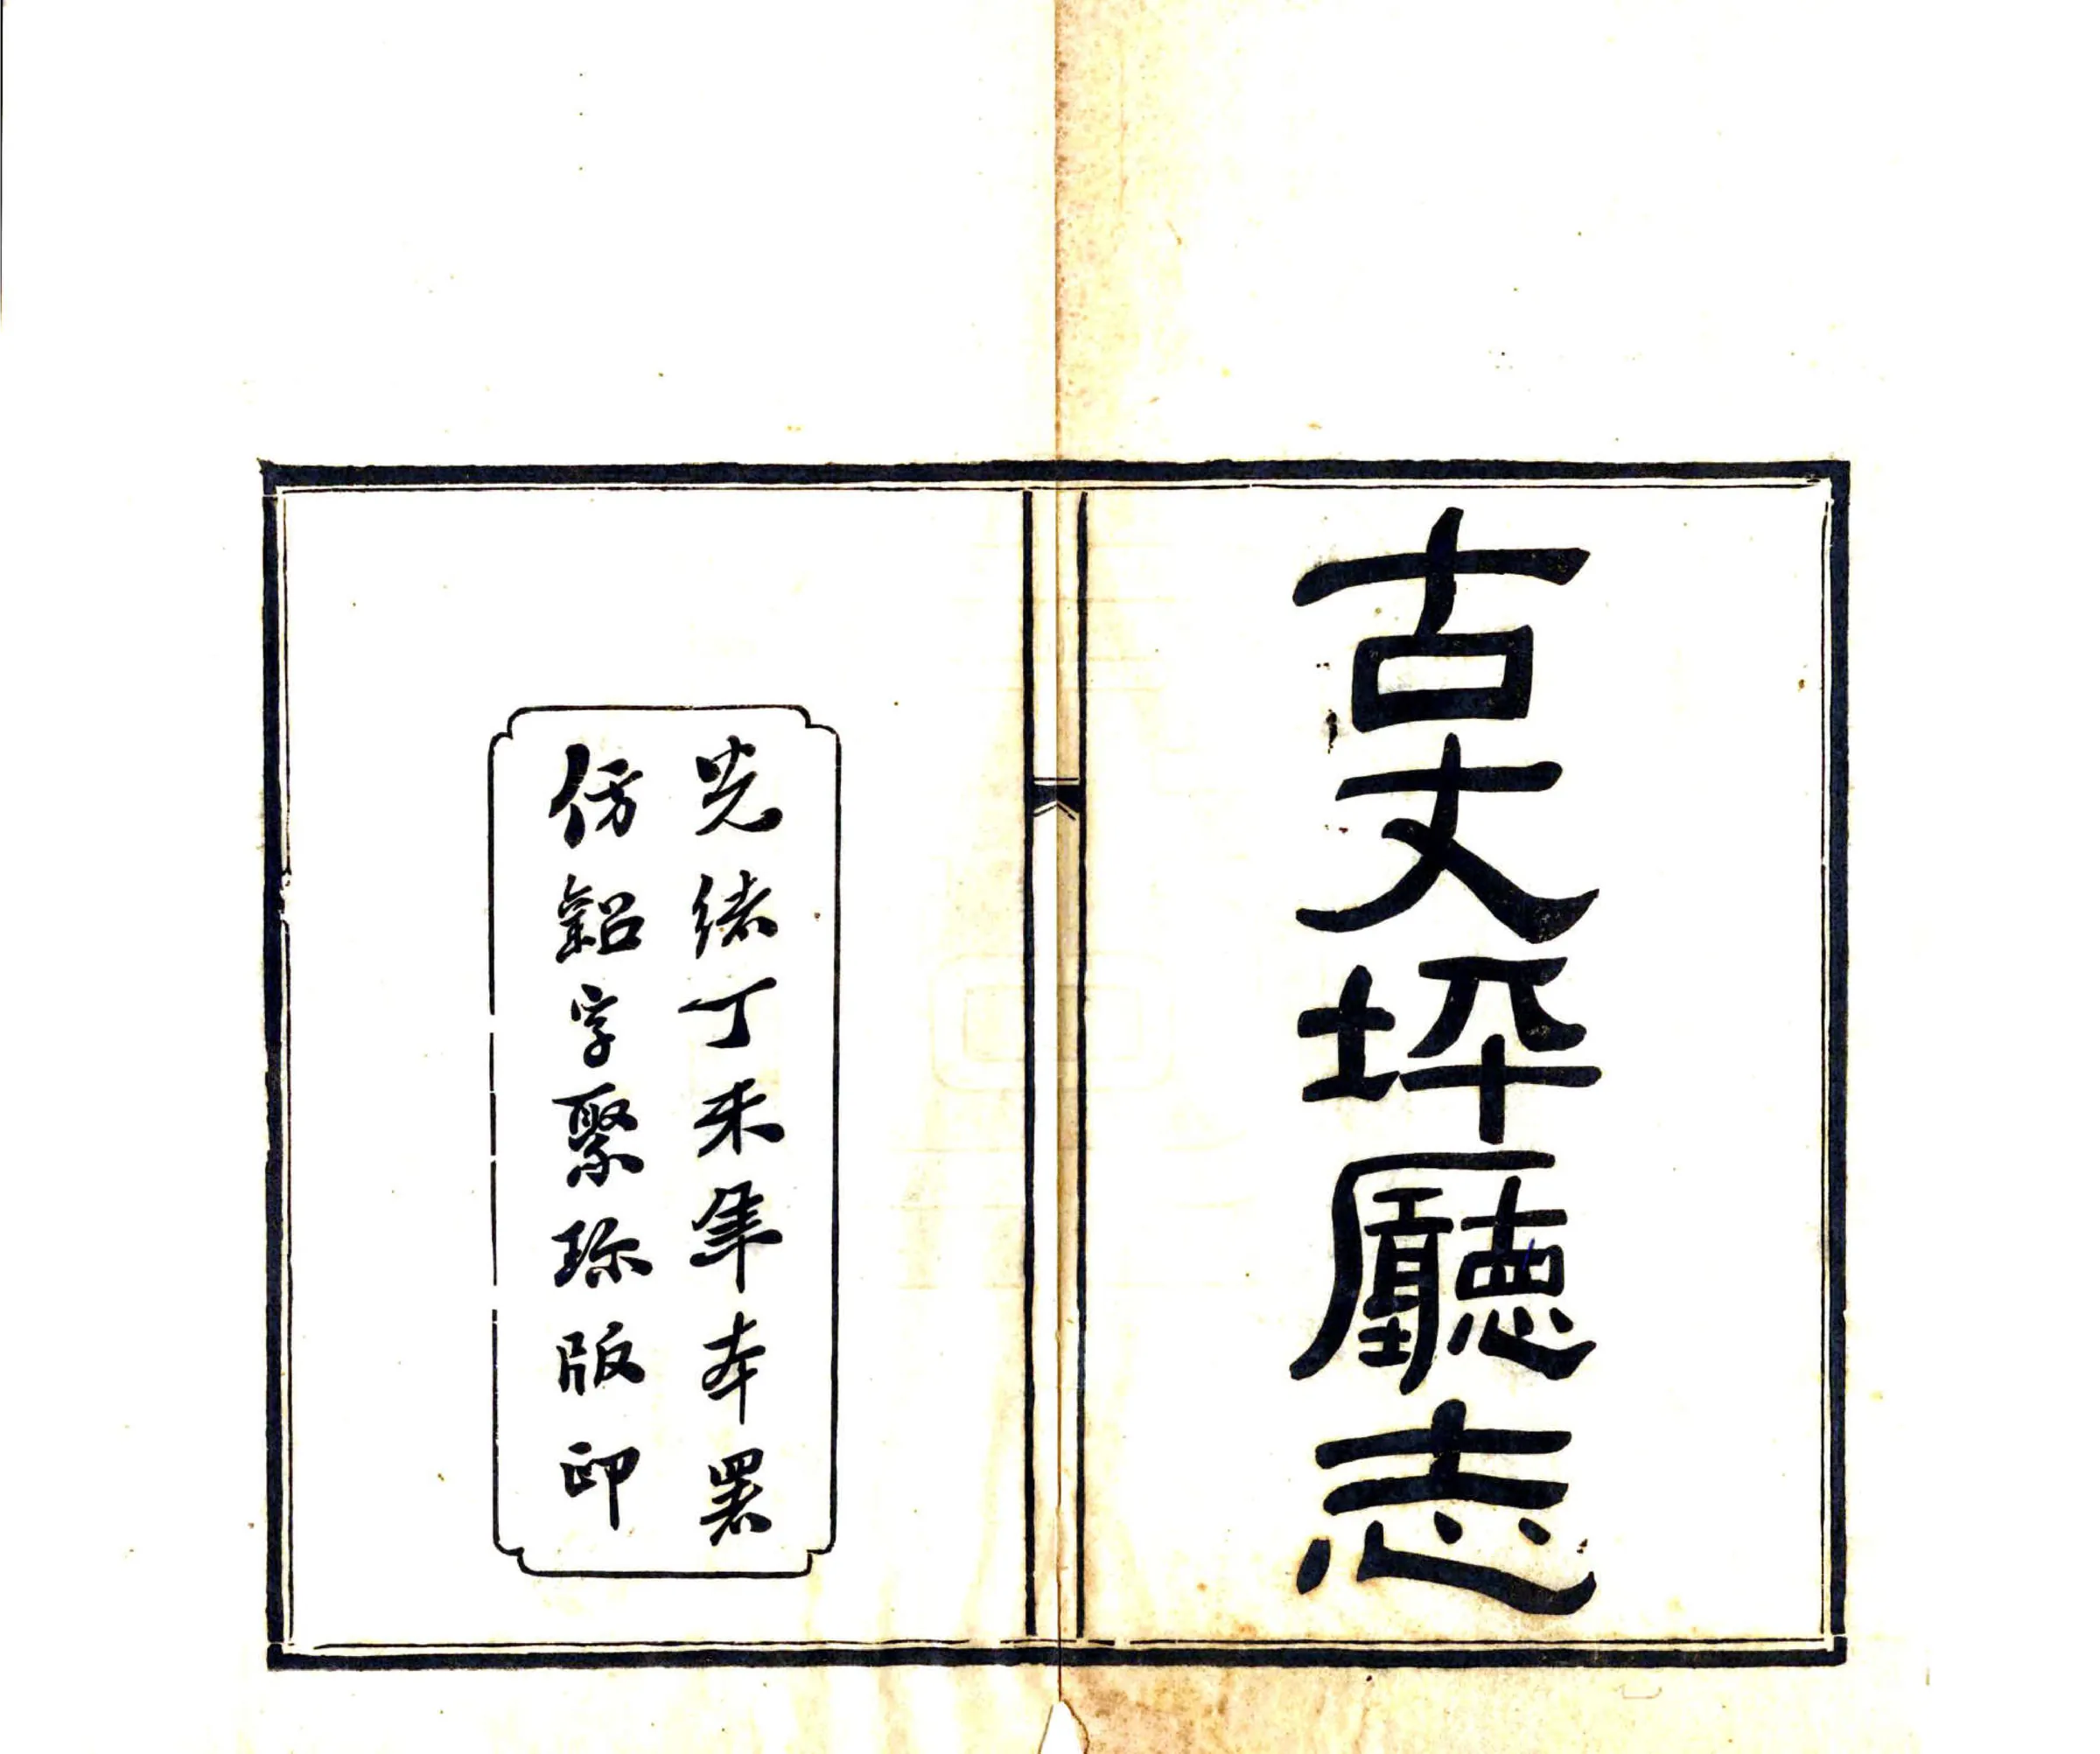 古丈坪廳志
光緒丁未年本署
仿鉛字聚珍版印